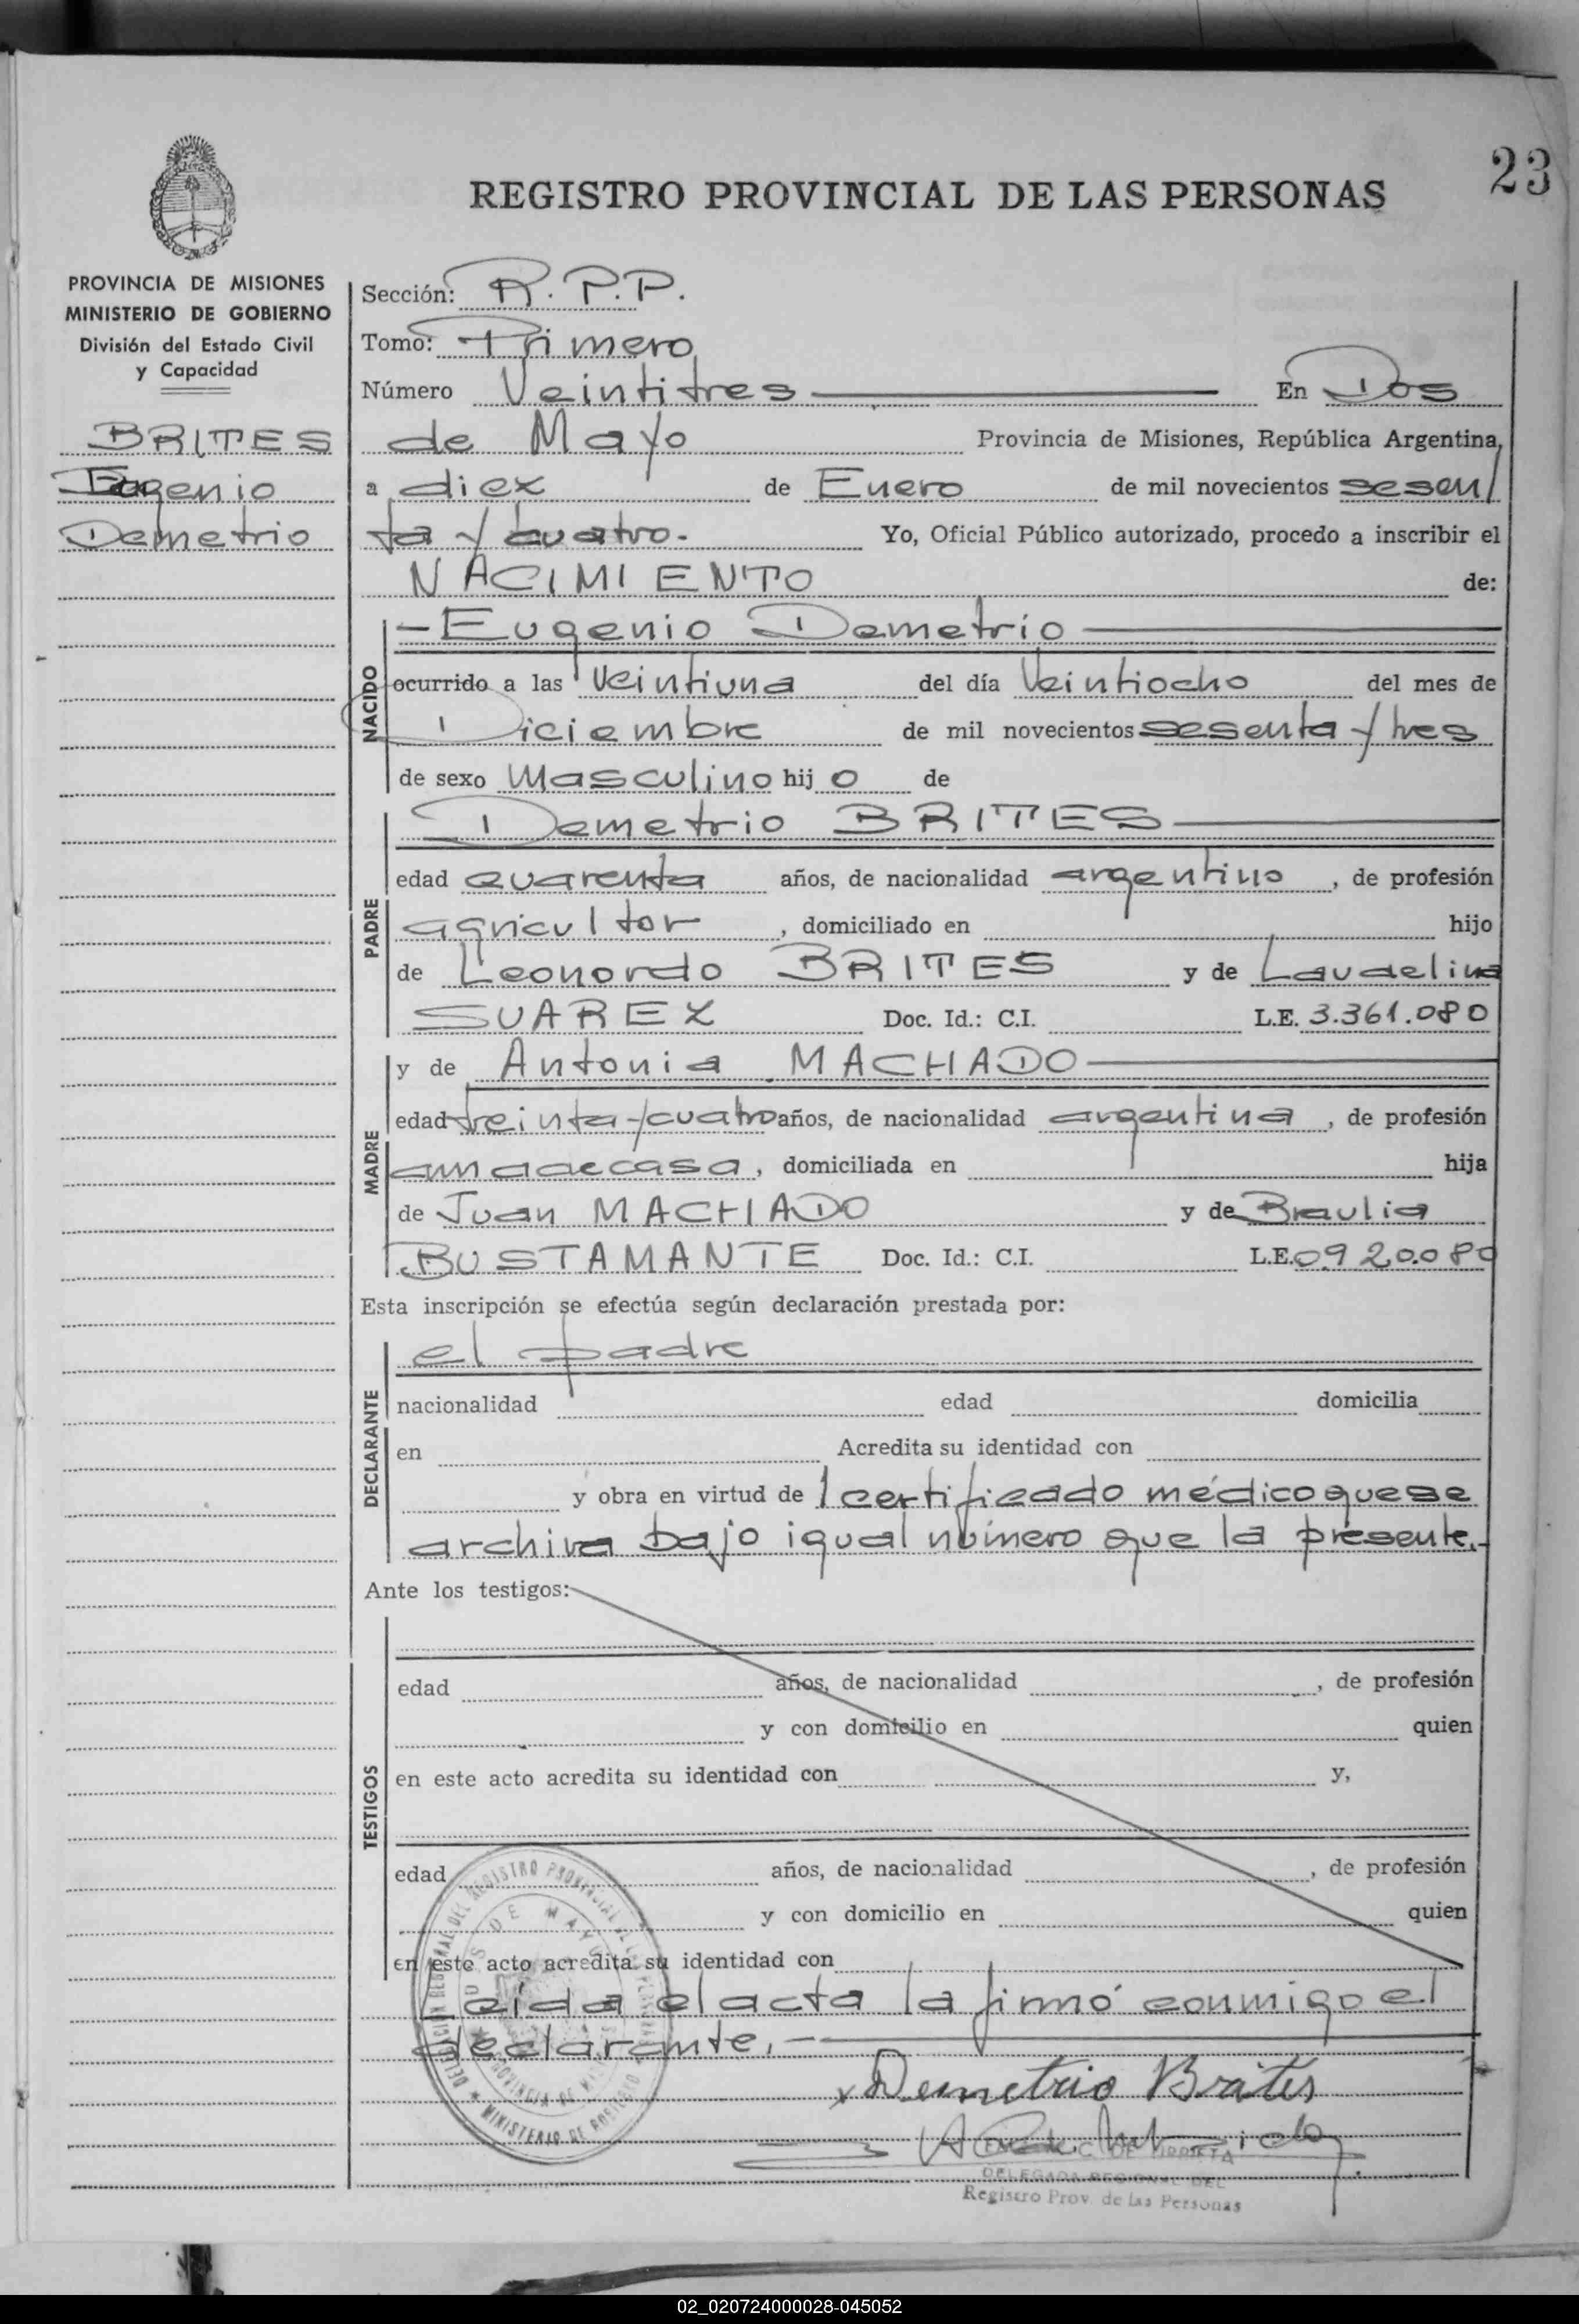 23
REGISTRO PROVINCIAL DE LAS PERSONAS
PROVINCIA DE MISIONES
MINISTERIO DE GOBIERNO
División del Estado Civil
y Capacidad
BRITES
Eugenio
Demetrio
Sección: R.P.P.
Tomo: Primero
Número Veintitres En Dos
de Mayo Provincia de Misiones, República Argentina,
a diez de Enero de mil novecientos sesen/
ta y cuatro.- Yo, Oficial Público autorizado, procedo a inscribir el
NACIMIENTO de:
NACIDO
-Eugenio Demetrio
ocurrido a las veintiuna del día veintiocho del mes de
Diciembre de mil novecientos sesenta y tres
de sexo Masculino hij o de
PADRE
Demetrio BRITES
edad cuarenta años, de nacionalidad argentino, de profesión
agricultor, domiciliado en hijo
de Leonardo BRITES y de Laudelina
SUAREZ Doc. Id.: C.I. L.E. 3.361.080
MADRE
y de Antonia MACHADO
edad treinta y cuatro años, de nacionalidad argentina, de profesión
ama de casa, domiciliada en hija
de Juan MACHADO y de Braulia
BUSTAMANTE Doc. Id.: C.I. L.E. 0.920.080
Esta inscripción se efectúa según declaración prestada por:
DECLARANTE
el padre
nacionalidad edad domicilia
en Acredita su identidad con
y obra en virtud de 1 certificado médico que se
archiva bajo igual número que la presente.-
Ante los testigos:
TESTIGOS
edad años, de nacionalidad , de profesión
y con domicilio en quien
en este acto acredita su identidad con y,
edad años, de nacionalidad , de profesión
y con domicilio en quien
en este acto acredita su identidad con
Leída el acta la firmó conmigo el
declarante.-
DELEGACION REGIONAL DEL REGISTRO PROVINCIAL DE LAS PERSONAS
DOS DE MAYO
PROVINCIA DE MISIONES
MINISTERIO DE GOBIERNO
x Demetrio Brites
C. DE URRIETA
DELEGADA REGIONAL DEL
Registro Prov. de las Personas
02_020724000028-045052